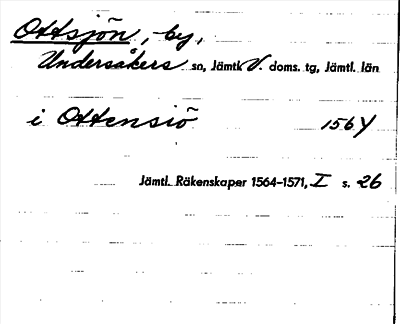 Ottsjön, by,
Undersåkers so, Jämtl. V. doms. tg, Jämtl. län
i Ottensiö 1564
Jämtl. Räkenskaper 1564–1571, I s. 26